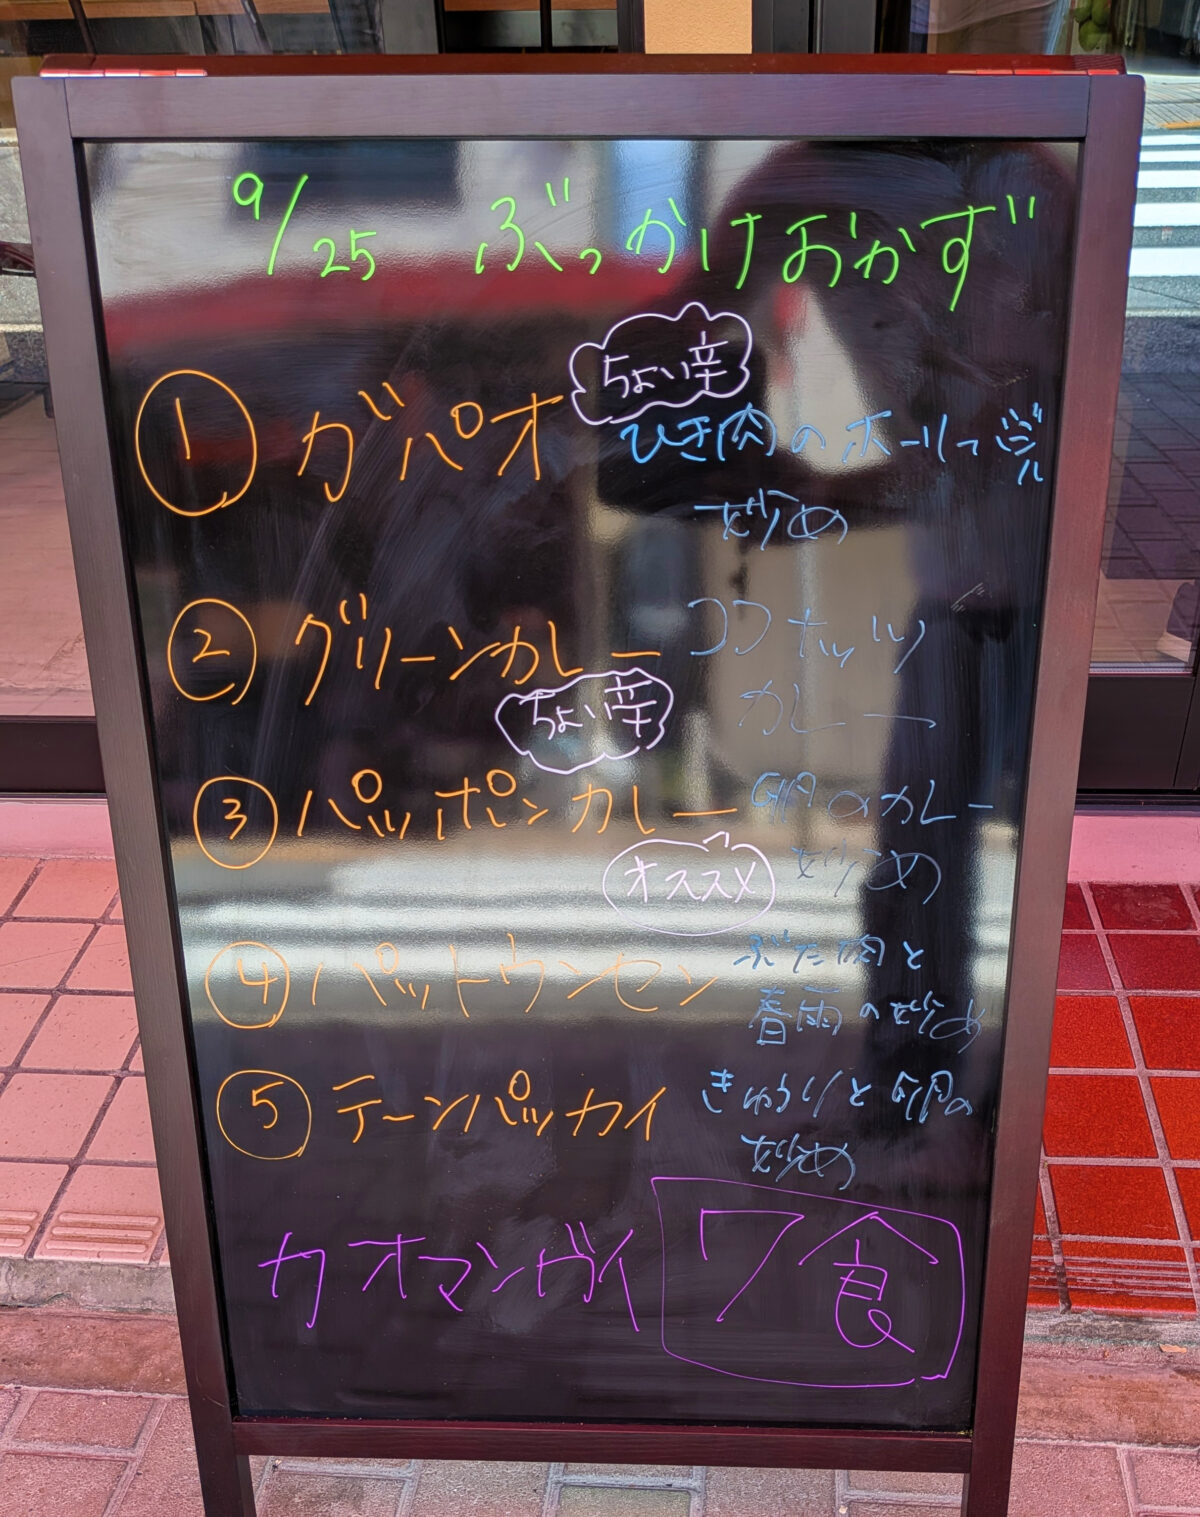 9/25 ぶっかけおかず
ちょい辛
① ガパオ ひき肉のホーリーバジル
炒め
② グリーンカレー ココナッツ
カレー
ちょい辛
③ パッポンカレー 卵のカレー
炒め
オススメ
④ パットウンセン ぶた肉と
春雨の炒め
⑤ テーンパッカイ きゅうりと卵の
炒め
カオマンガイ 7食